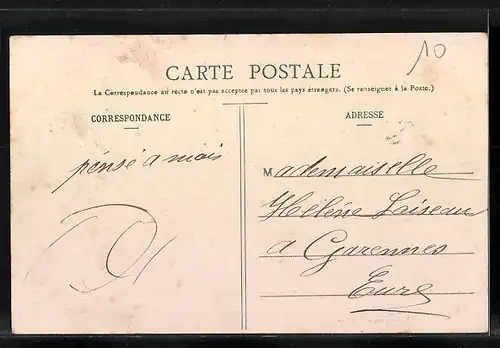 10
CARTE POSTALE
La Correspondance au recto n'est pas acceptée par tous les pays étrangers. (Se renseigner à la Poste.)
CORRESPONDANCE
ADRESSE
pensé a mois
Mademaiselle
Hélène Loiseau
a Garennes
Eure